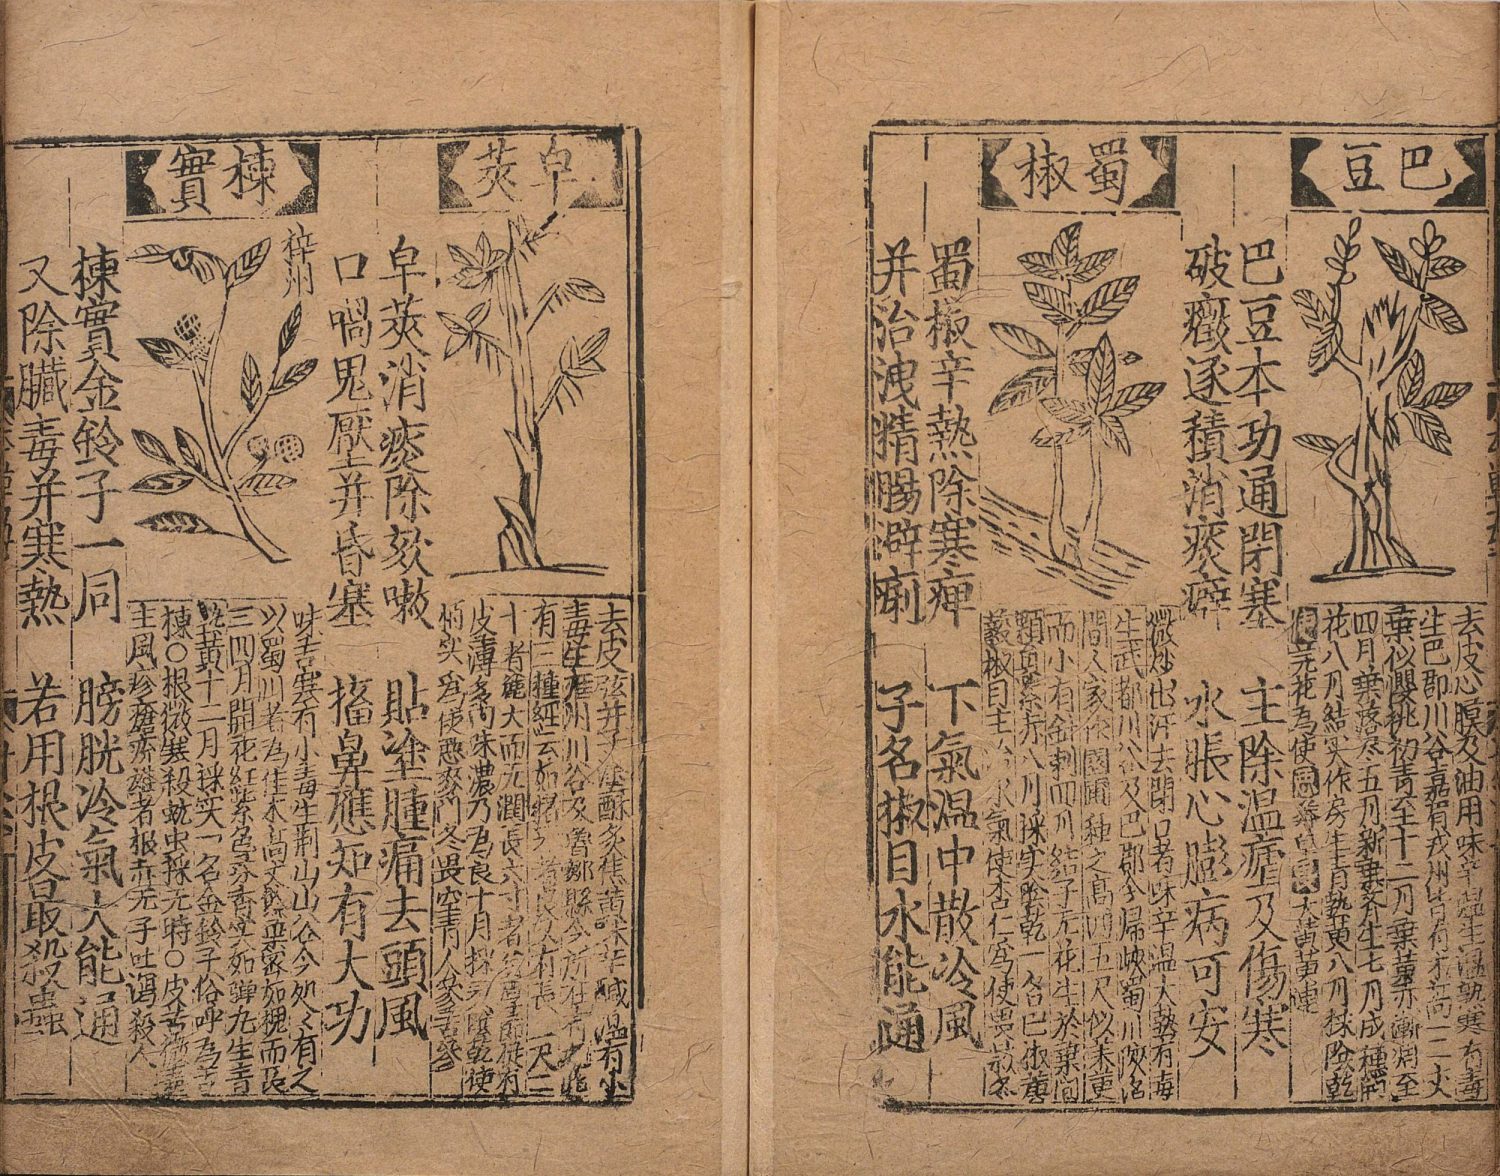 巴豆
去皮心膜及油用味辛温生温熟寒有毒
生巴郡川谷嘉眉戎州皆有木高一二丈
葉似櫻桃初青至十二月葉黄赤漸凋至
四月葉落尽五月新葉齐生七月成穗而
花八月結实作房生青熟黄八月採陰乾
芫花為使 大黄黄連
巴豆本功通閉塞 主除温瘧及傷寒
破癥逐積消痰癖 水脹心膨病可安
蜀椒
微炒出汗去閉口者味辛温大熱有毒
生武都川谷及巴郡今歸峽蜀川陝洛
間人家作園圃種之高四五尺似茱萸
而小有針刺四月結子无花生於葉間
顆員紫赤八月採实陰乾一名巴椒
藙椒目主治水氣使杏仁為使畏款冬
蜀椒辛熱除寒痺 下氣温中散冷風
并治洩精腸澼痢 子名椒目水能通
皁莢
去皮弦并子塗酥炙焦黄味辛鹹温有小
毒生雍州川谷及魯鄒縣今所在有之
有三種經云如猪牙者良又有長一尺二
十者麄大而无潤長六寸者
皮薄多肉味濃乃為良十月採莢陰乾使
栢实為使惡麥門冬畏空青人參苦參
皁莢消痰除欬嗽 貼塗腫痛去頭風
口喎鬼壓并昏塞 搐鼻應知有大功
楝實
梓州
味苦寒有小毒生荆山山谷今処々有之
以蜀川者為佳木高丈餘葉密如槐而長
三四月開花紅紫色芬香实如弹丸生青
熟黄十二月採实一名金鈴子俗呼為苦
楝○根微寒殺蚘虫採无時○皮苦微毒
主風疹瘡疥雄者根赤无子吐瀉殺人
楝實金鈴子一同 膀胱冷氣大能通
又除臟毒并寒熱 若用根皮最殺蟲